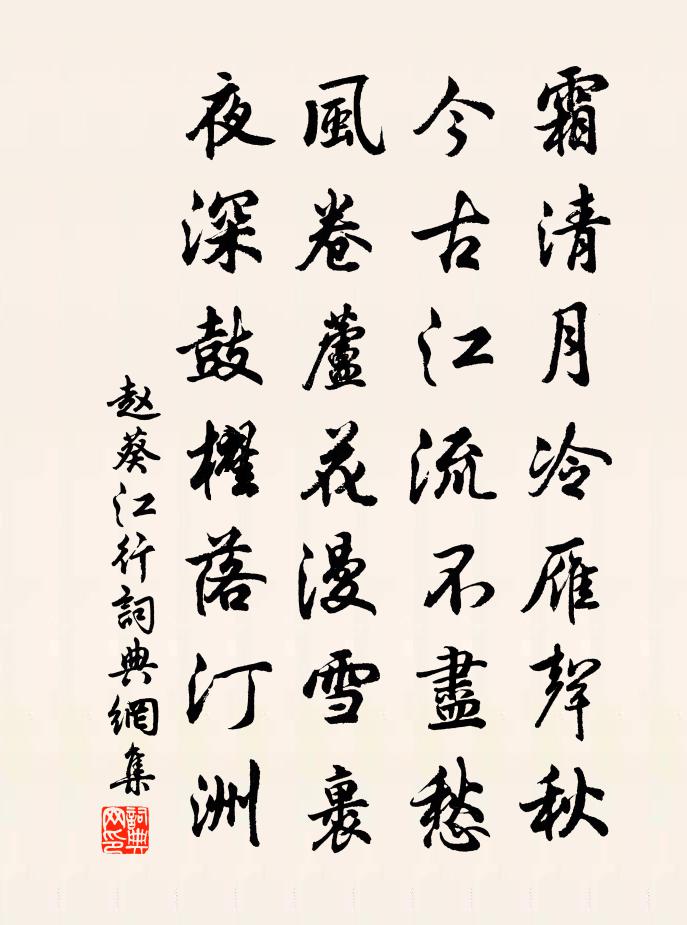 霜清月冷雁聲秋
今古江流不盡愁
風卷蘆花漫雪裏
夜深鼓櫂落汀洲
赵葵江行詞典網集
詞典网印